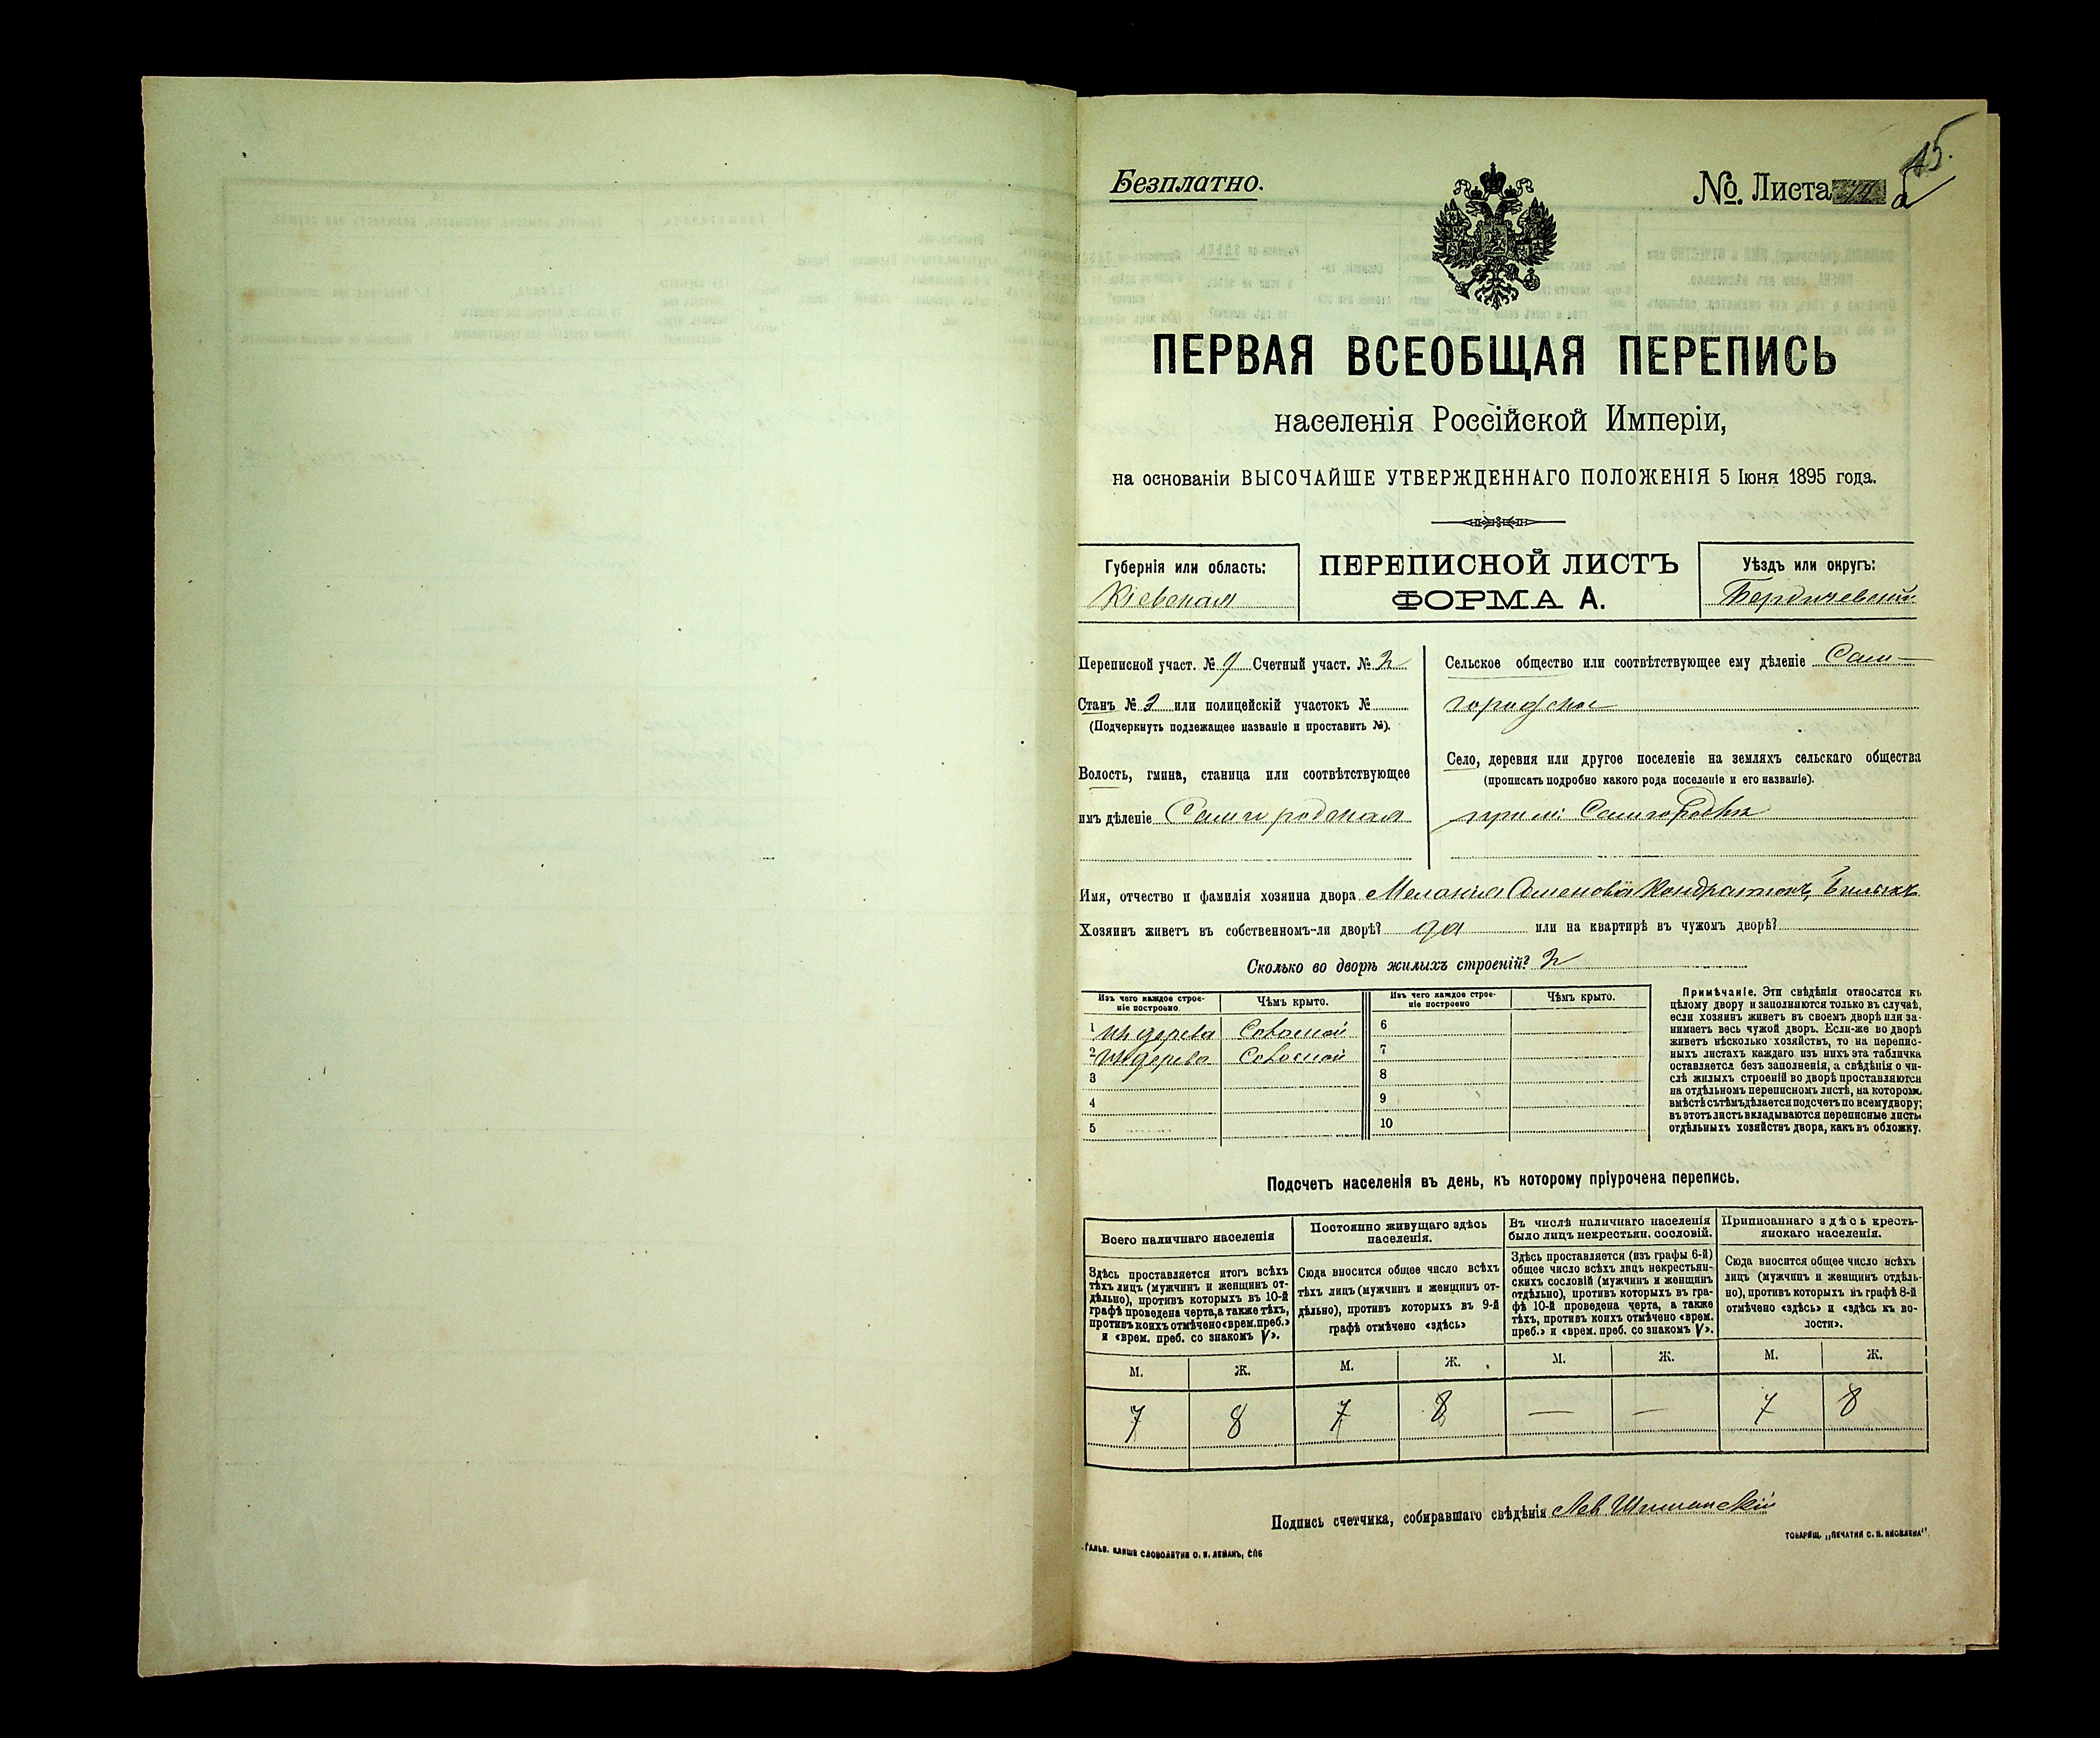 15.
Безплатно.
№. Листа
ПЕРВАЯ ВСЕОБЩАЯ ПЕРЕПИСЬ
населенія Россійской Имперіи,
на основаніи ВЫСОЧАЙШЕ УТВЕРЖДЕННАГО ПОЛОЖЕНІЯ 5 Іюня 1895 года.
Губернія или область:
Кіевская
ПЕРЕПИСНОЙ ЛИСТЪ
ФОРМА А.
Уѣздъ или округъ:
Бердичевскій
Переписной участ. № 9 Счетный участ. № 2
Станъ № 2 или полицейскій участокъ №
(Подчеркнуть подлежащее названіе и проставить №).
Волость, гмина, станица или соотвѣтствующее
имъ дѣленіе Самгородская
Сельское общество или соотвѣтствующее ему дѣленіе Сам-
городское
Село, деревня или другое поселеніе на земляхъ сельскаго общества
(прописать подробно какого рода поселеніе и его названіе).
Самгородка
Имя, отчество и фамилія хозяина двора Меланія Семенова Кондратюкъ,
Хозяинъ живетъ въ собственномъ-ли дворѣ? да или на квартирѣ въ чужомъ дворѣ?
Сколько во дворѣ жилыхъ строеній? 2
Изъ чего каждое строе-
ніе построено
Чѣмъ крыто.
Изъ чего каждое строе-
ніе построено
Чѣмъ крыто.
1 изъ дерева Соломой 6
2 изъ дерева Соломой 7
3 8
4 9
5 10
Примѣчаніе. Эти свѣдѣнія относятся къ
цѣлому двору и заполняются только въ случаѣ,
если хозяинъ живетъ въ своемъ дворѣ или за-
нимаетъ весь чужой дворъ. Если-же во дворѣ
живетъ нѣсколько хозяйствъ, то на перепис-
ныхъ листахъ каждаго изъ нихъ эта табличка
оставляется безъ заполненія, а свѣдѣнія о чи-
слѣ жилыхъ строеній во дворѣ проставляются
на отдѣльномъ переписномъ листѣ, на которомъ
вмѣстѣ съ тѣмъ дѣлается подсчетъ по всему двору;
въ этотъ листъ вкладываются переписные листы
отдѣльныхъ хозяйствъ двора, какъ въ обложку.
Подсчетъ населенія въ день, къ которому пріурочена перепись.
Всего наличнаго населенія
Здѣсь проставляется итогъ всѣхъ
тѣхъ лицъ (мужчинъ и женщинъ от-
дѣльно), противъ которыхъ въ 10-й
графѣ проведена черта, а также тѣхъ,
противъ коихъ отмѣчено «врем. преб.»
и «врем. преб. со знакомъ V».
Постоянно живущаго здѣсь
населенія.
Сюда вносится общее число всѣхъ
тѣхъ лицъ (мужчинъ и женщинъ от-
дѣльно), противъ которыхъ въ 9-й
графѣ отмѣчено «здѣсь»
Въ числѣ наличнаго населенія
было лицъ некрестьян. сословій.
Здѣсь проставляется (изъ графы 6-й)
общее число всѣхъ лицъ некрестьян-
скихъ сословій (мужчинъ и женщинъ
отдѣльно), противъ которыхъ въ гра-
фѣ 10-й проведена черта, а также
тѣхъ, противъ коихъ отмѣчено «врем.
преб.» и «врем. преб. со знакомъ V».
Приписаннаго здѣсь кресть-
янскаго населенія.
Сюда вносится общее число всѣхъ
лицъ (мужчинъ и женщинъ отдѣль-
но), противъ которыхъ въ графѣ 8-й
отмѣчено «здѣсь» и «здѣсь къ во-
лости».
М. Ж. М. Ж. М. Ж. М. Ж.
7 8 7 8 — — 7 8
Подпись счетчика, собиравшаго свѣдѣнія Лев Шиманскій
ГАЛЬВ. КЛИШЕ СЛОВОЛИТНИ О. И. ЛЕМАНЪ, СПБ
ТОВАРИЩ. „ПЕЧАТНЯ С. П. ЯКОВЛЕВА“.